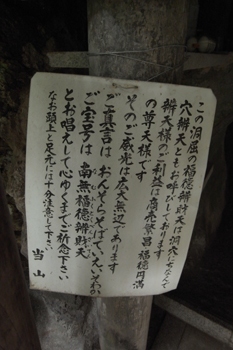 この洞屈の福徳辨財天は洞穴にちなんで
穴辨天ともお呼びしております
辨天様のご利益は商売繁昌 福徳円満
の尊天様です
そのご威光は広大無辺であります
ご真言は おんそらそばていえいそわか
ご宝号は 南無福徳辨財天
とお唱えして心ゆくまでご祈念下さい
なお頭上と足元には十分注意して下さい
当山